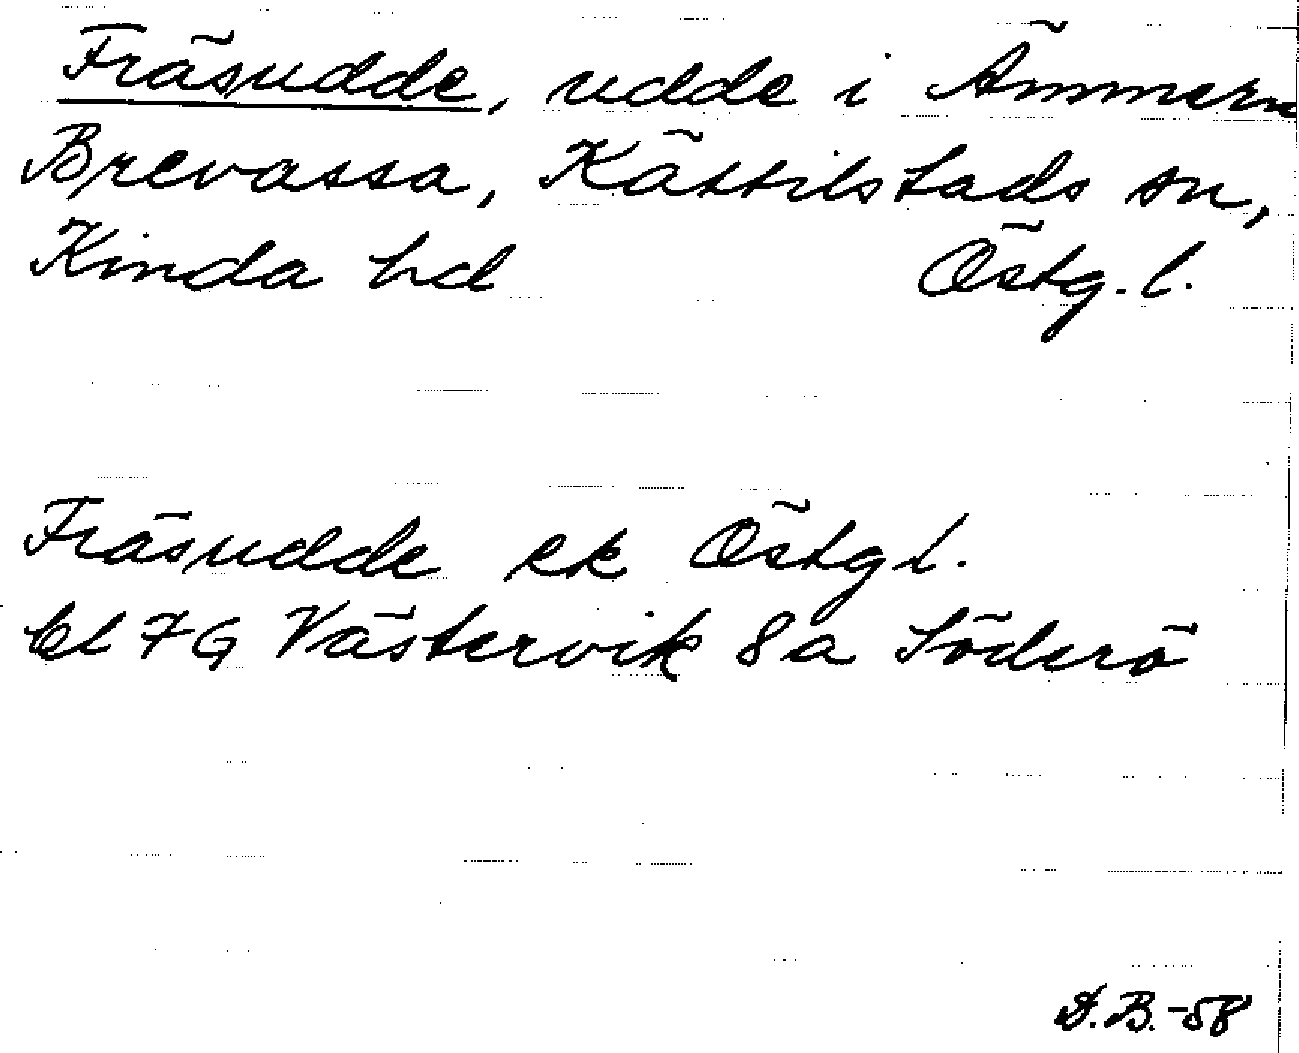 Fräsudde, udde i Ämmern
Brevassa, Kättilstads sn,
Kinda hd Östg. l.
Fräsudde ek Östg l.
bl 7G Västervik 8a Söderö
D.B.-58